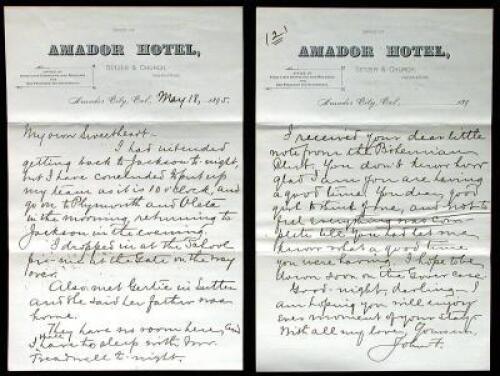 OFFICE OF
AMADOR HOTEL,
SETZER & CHURCH,
PROPRIETORS
OFFICE OF
Amador City, Cal., May 18, 1895.
My own Sweetheart -
I had intended
getting back to Jackson to-night,
but I have concluded to put up
my team as it is 10 o'clock, and
go on to Plymouth and Oleta
in the morning, returning to
Jackson in the evening.
I dropped in at the School
pic-nic at the Gate on the way
over.
Also met Gertie in Sutter
and she said her father was
home.
They have no room here, and
I have to sleep with Mr.
Treadwell to-night.
(2)
OFFICE OF
AMADOR HOTEL,
SETZER & CHURCH,
PROPRIETORS
OFFICE OF
Amador City, Cal., 189
I received your dear little
note from the Bohemian
Club. You don't know how
glad I am you are having
a good time. You dear good
girl to think of me, and not to
feel everything was com
plete till you had let me
know what a good time
you were having. I hope to be
down soon on the Grover case.
Good-night, darling - I
am hoping you will enjoy
every moment of your stay.
With all my love, Yours
John F.